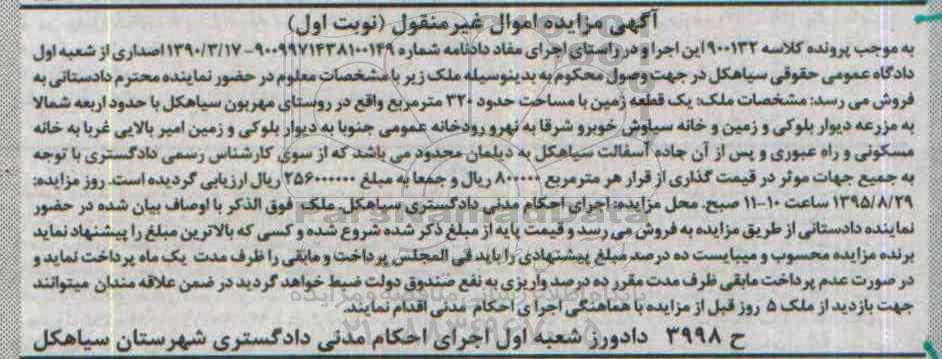 آگهی مزایده اموال غیرمنقول (نوبت اول)
به موجب پرونده کلاسه ۹۰۰۱۳۲ این اجرا و در راستای اجرای مفاد دادنامه شماره ۹۰۰۹۹۷۱۴۳۸۱۰۰۱۴۹-۱۳۹۰/۳/۱۷ اصداری از شعبه اول
دادگاه عمومی حقوقی سیاهکل در جهت وصول محکوم به بدینوسیله ملک زیر با مشخصات معلوم در حضور نماینده محترم دادستانی به
فروش می رسد: مشخصات ملک: یک قطعه زمین با مساحت حدود ۳۲۰ مترمربع واقع در روستای مهربون سیاهکل با حدود اربعه شمالا
به مزرعه دیوار بلوکی و زمین و خانه سیاوش خوبرو شرقا به نهرو رودخانه عمومی جنوبا به دیوار بلوکی و زمین امیر بالایی غربا به خانه
مسکونی و راه عبوری و پس از آن جاده آسفالت سیاهکل به دیلمان محدود می باشد که از سوی کارشناس رسمی دادگستری با توجه
به جمیع جهات موثر در قیمت گذاری از قرار هر مترمربع ۸۰۰۰۰۰ ریال و جمعا به مبلغ ۲۵۶۰۰۰۰۰۰ ریال ارزیابی گردیده است. روز مزایده:
۱۳۹۵/۸/۲۹ ساعت ۱۰-۱۱ صبح. محل مزایده: اجرای احکام مدنی دادگستری سیاهکل. ملک فوق الذکر با اوصاف بیان شده در حضور
نماینده دادستانی از طریق مزایده به فروش می رسد و قیمت پایه از مبلغ ذکر شده شروع شده و کسی که بالاترین مبلغ را پیشنهاد نماید
برنده مزایده محسوب و میبایست ده درصد مبلغ پیشنهادی را باید فی المجلس پرداخت و مابقی را ظرف مدت یک ماه پرداخت نماید و
در صورت عدم پرداخت مابقی ظرف مدت مقرر ده درصد واریزی به نفع صندوق دولت ضبط خواهد گردید در ضمن علاقه مندان میتوانند
جهت بازدید از ملک ۵ روز قبل از مزایده با هماهنگی اجرای احکام مدنی اقدام نمایند.
ح ۳۹۹۸ دادورز شعبه اول اجرای احکام مدنی دادگستری شهرستان سیاهکل